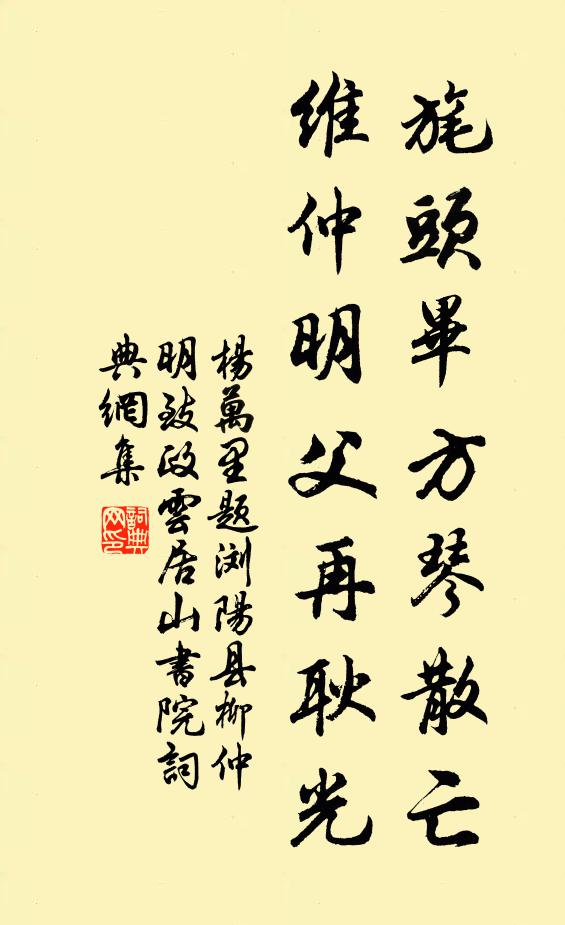 旄頭畢方琴散亡
維仲明父再耿光
楊萬里题浏陽县柳仲
明致政雲居山書院詞
典網集
詞典
网印